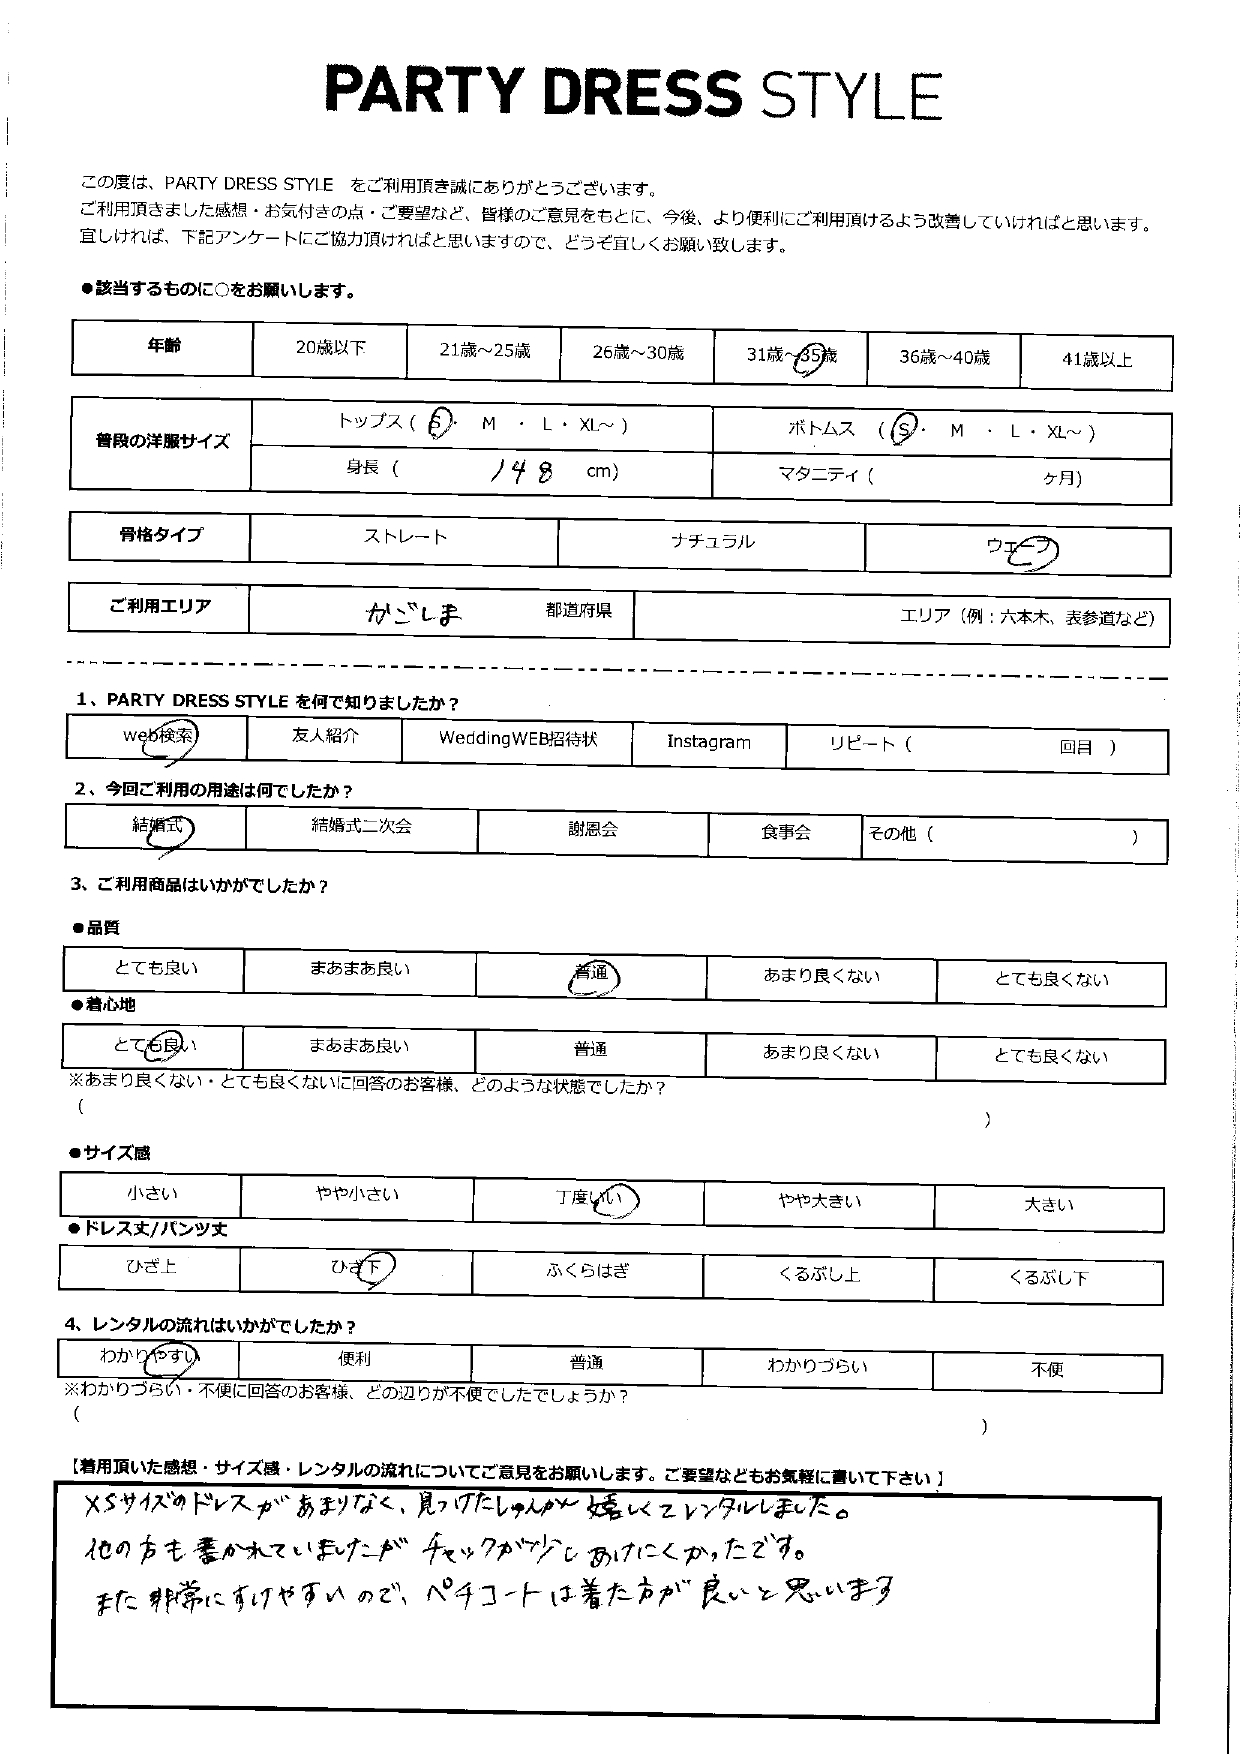 PARTY DRESS STYLE
この度は、PARTY DRESS STYLE をご利用頂き誠にありがとうございます。
ご利用頂きました感想・お気付きの点・ご要望など、皆様のご意見をもとに、今後、より便利にご利用頂けるよう改善していければと思います。
宜しければ、下記アンケートにご協力頂ければと思いますので、どうぞ宜しくお願い致します。
●該当するものに○をお願いします。
年齢 20歳以下 21歳～25歳 26歳～30歳 31歳～35歳 36歳～40歳 41歳以上
普段の洋服サイズ トップス ( S・ M ・ L・ XL～ ) ボトムス ( S・ M ・ L・ XL～ )
身長 ( 148 cm) マタニティ ( ヶ月)
骨格タイプ ストレート ナチュラル ウェーブ
ご利用エリア かごしま 都道府県 エリア（例：六本木、表参道など）
1、PARTY DRESS STYLE を何で知りましたか？
web検索 友人紹介 WeddingWEB招待状 Instagram リピート ( 回目 )
2、今回ご利用の用途は何でしたか？
結婚式 結婚式二次会 謝恩会 食事会 その他 ( )
3、ご利用商品はいかがでしたか？
●品質
とても良い まあまあ良い 普通 あまり良くない とても良くない
●着心地
とても良い まあまあ良い 普通 あまり良くない とても良くない
※あまり良くない・とても良くないに回答のお客様、どのような状態でしたか？
( )
●サイズ感
小さい やや小さい 丁度いい やや大きい 大きい
●ドレス丈/パンツ丈
ひざ上 ひざ下 ふくらはぎ くるぶし上 くるぶし下
4、レンタルの流れはいかがでしたか？
わかりやすい 便利 普通 わかりづらい 不便
※わかりづらい・不便に回答のお客様、どの辺りが不便でしたでしょうか？
( )
【着用頂いた感想・サイズ感・レンタルの流れについてご意見をお願いします。ご要望などもお気軽に書いて下さい】
XSサイズのドレスがあまりなく、見つけたしゅんかん嬉しくてレンタルしました。
他の方も書かれていましたがチャックが少しあけにくかったです。
また非常にすけやすいので、ペチコートは着た方が良いと思います